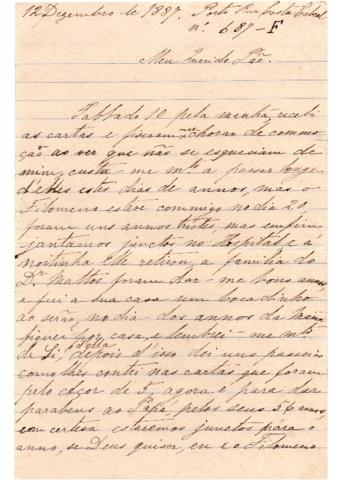 12 Dezembro de 1887. Porto Rua Costa Cabral
nº. 687-F
Meu Querido Pae.
Sabbado 10 pela manhã, recebi
as cartas e fiseram-me chorar de commo-
ção ao ver que não se esqueciam de
mim, custa-me mto a passar longe
d'elles estes dias de annos, mas o
Filomeno esteve commigo no dia 20
foram uns annos tristes, mas emfim
jantamos junctos no hospital, e a
noitinha elle retirou, a familia do
Dr Mattos foram dar-me bons annos
e fui a sua casa um bocadinho
ao serão, no dia dos annos da
fiquei por casa, e lembrei-me mto
de Si, e d'ella, depois d'isso dei uns passeios
como lhes contei nas cartas que foram
pelo Açor de 5, agora é para dar
parabens ao Papá, pelos seus 56 annos,
com certesa estaremos junctos para o
anno, se Deus quiser, eu e o Filomeno